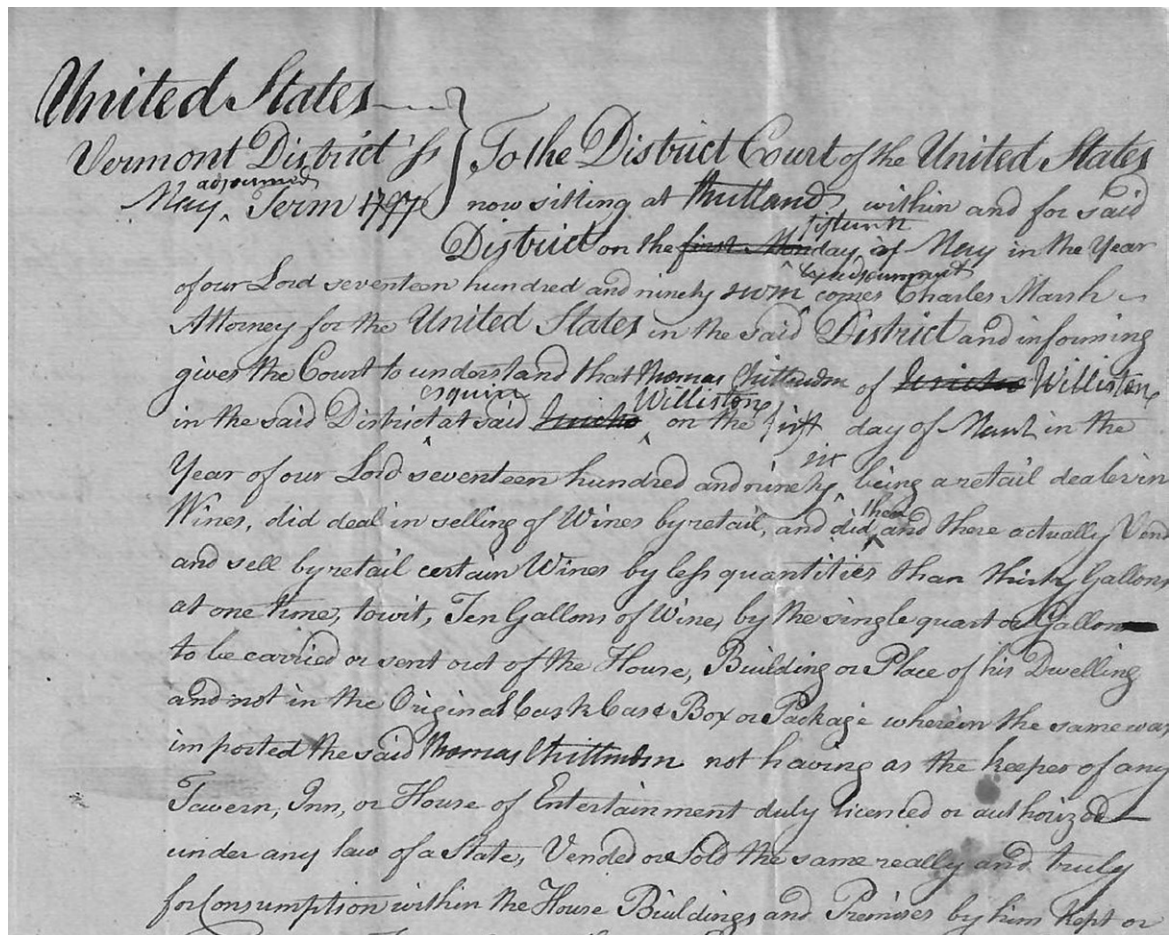 United States
Vermont District ss } To the District Court of the United States
May adjourned Term 1797 now sitting at Rutland within and for said
District on the first Monday fifteenth day of May in the Year
of our Lord seventeen hundred and ninety seven comes Charles Marsh
Attorney for the United States in the said District and informing
gives the Court to understand that Thomas Chittenden of Jericho Williston
in the said District esquire at said Jericho Williston on the first day of March in the
Year of our Lord seventeen hundred and ninety six being a retail dealer in
Wines, did deal in selling of Wines by retail, and did then and there actually Vend
and sell by retail certain Wines by less quantities than thirty Gallons
at one time, towit, Ten Gallons of Wine, by the single quart or Gallon
to be carried or sent out of the House, Building or Place of his Dwelling
and not in the Original Cask Case Box or Package wherein the same was
imported the said Thomas Chittenden not having as the keeper of any
Tavern, Inn, or House of Entertainment duly licenced or authorized
under any law of a State, Vended or Sold the same really and truly
for Consumption within the House Buildings and Premises by him Kept or